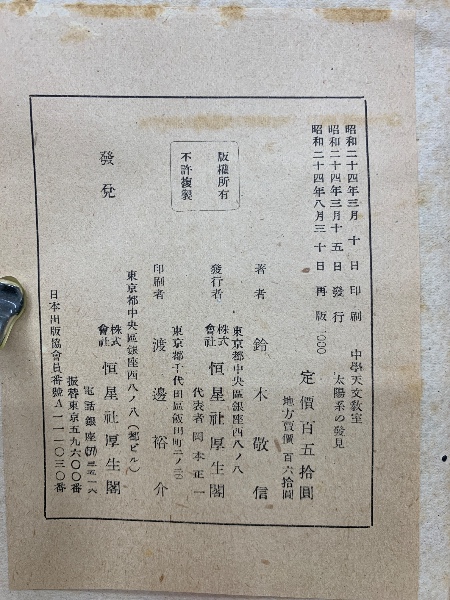 昭和二十四年三月 十 日 印刷
昭和二十四年三月十五日 發行
昭和二十四年八月三十日 再版 1,000
中學天文敎室
太陽系の發見
定價 百五拾圓
地方賣價 百六拾圓
版權所有
不許複製
著者 鈴木敬信
東京都中央區銀座西八ノ八
發行者 株式會社 恒星社厚生閣
代表者 岡本正一
東京都千代田區飯田町二ノ二〇
印刷者 渡邊裕介
東京都中央區銀座西八ノ八(都ビル)
發兌 株式會社 恒星社厚生閣
電話銀座
振替東京五九六〇〇番
日本出版協會員番號A一一一〇三〇番